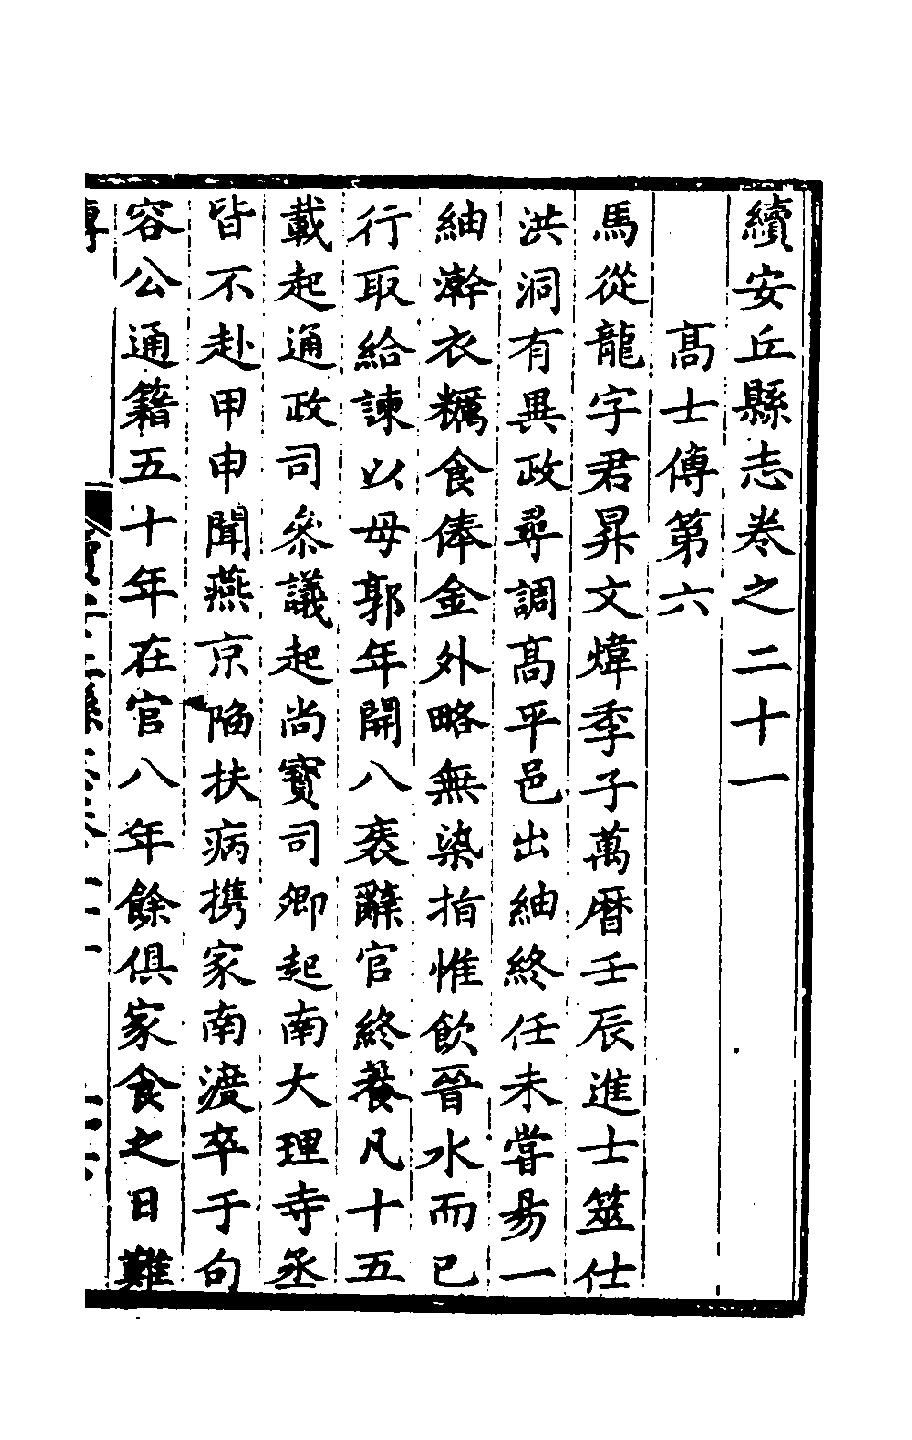 續安丘縣志卷之二十一
髙士傳第六
馬從龍字君昇文煒季子萬曆壬辰進士筮仕
洪洞有異政尋調髙平邑出紬終任未嘗易一
紬澣衣糲食俸金外略無染指惟飲晉水而已
行取給諫以母郭年開八袠辭官終養凡十五
載起通政司叅議起尚寳司卿起南大理寺丞
皆不赴甲申聞燕京陥扶病携家南渡卒于句
容公通籍五十年在官八年餘俱家食之日難